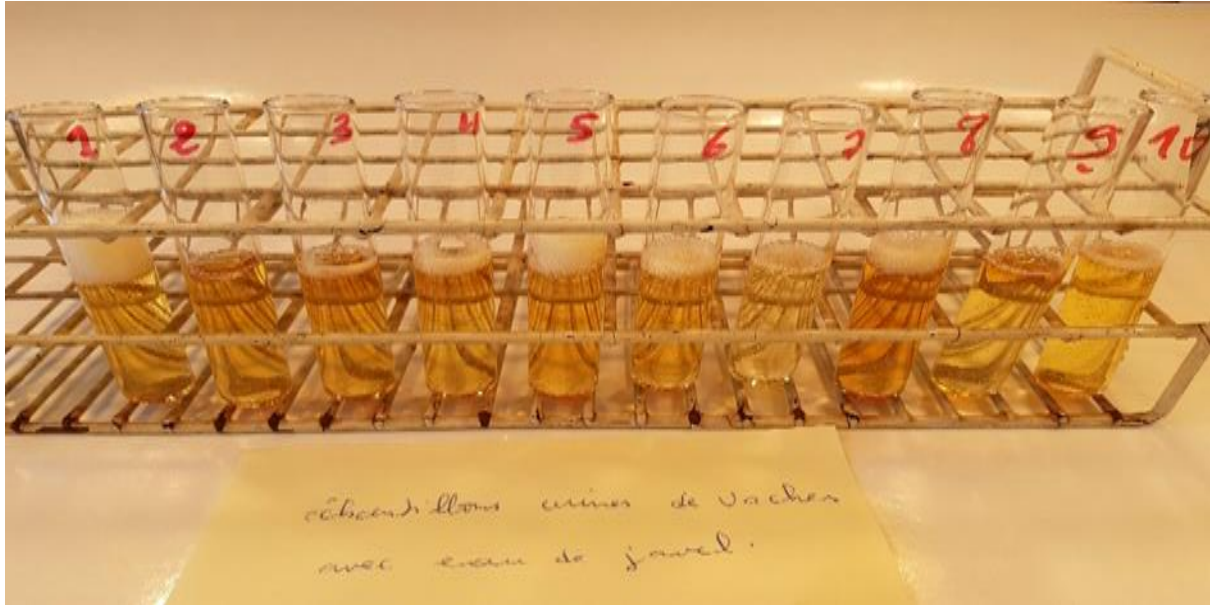 1 2 3 4 5 6 7 8 9 10
échantillons urines de vaches
avec eau de javel.